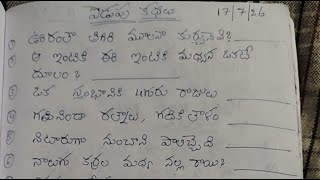 పొడుపు కథలు
17/7/26
① ఊరంతా తిరిగి మూలనా కూర్చునేది?
② ఆ ఇంటికి ఈ ఇంటికి మధ్యన ఒకటే
దూలం =
③ ఒక స్తంభానికి నలుగురు రాజులు
④ గది నిండా రత్నాలు, గదికి తాళం
⑤ నిటారుగా నుంచాని
⑥ నాలుగు కర్రల మధ్య నల్ల రాయి?